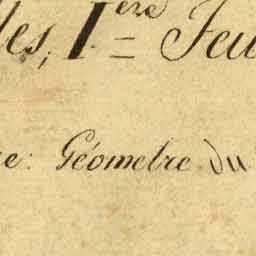 les, I.ere Feu
e: Géometre du